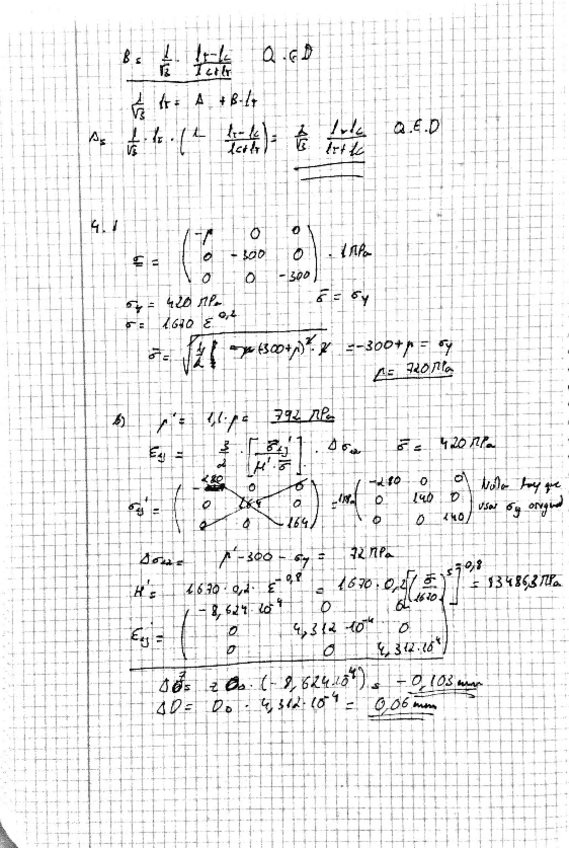 B = 1/√3 · (lτ - lc)/(lc + lτ) Q.E.D
1/√3 lτ = A + B · lτ
A = 1/√3 · lτ · (1 - (lτ - lc)/(lc + lτ)) = 2/√3 (lτ · lc)/(lτ + lc) Q.E.D
4.1
σ = (-p 0 0
0 -300 0
0 0 -300) · 1 MPa
σy = 420 MPa σ̄ = σy
σ = 1670 ε^0,2
σ̄ = √(1/2 ( (-300+p)² · 2 = -300 + p = σy
p = 720 MPa
b) p' = 1,1 · p = 792 MPa
εij = 3/2 · [σij' / H' · σ̄] · Δσ σ̄ = 420 MPa
σij' = ( 0 0
0 164 0
0 0 164) = 1 MPa (-280 0 0
0 140 0
0 0 140) Nota hay que usar σy original
Δσ = p' - 300 - σy = 72 MPa
H' = 1670 · 0,2 · ε^-0,8 = 1670 · 0,2 [(σ̄/1670)^5]^-0,8 = 83486,3 MPa
εij' = (-8,624·10^-4 0 0
0 4,312·10^-4 0
0 0 4,312·10^-4)
(-8,624·10^-4) = -0,103 mm
ΔD = D0 · 4,312·10^-4 = 0,06 mm